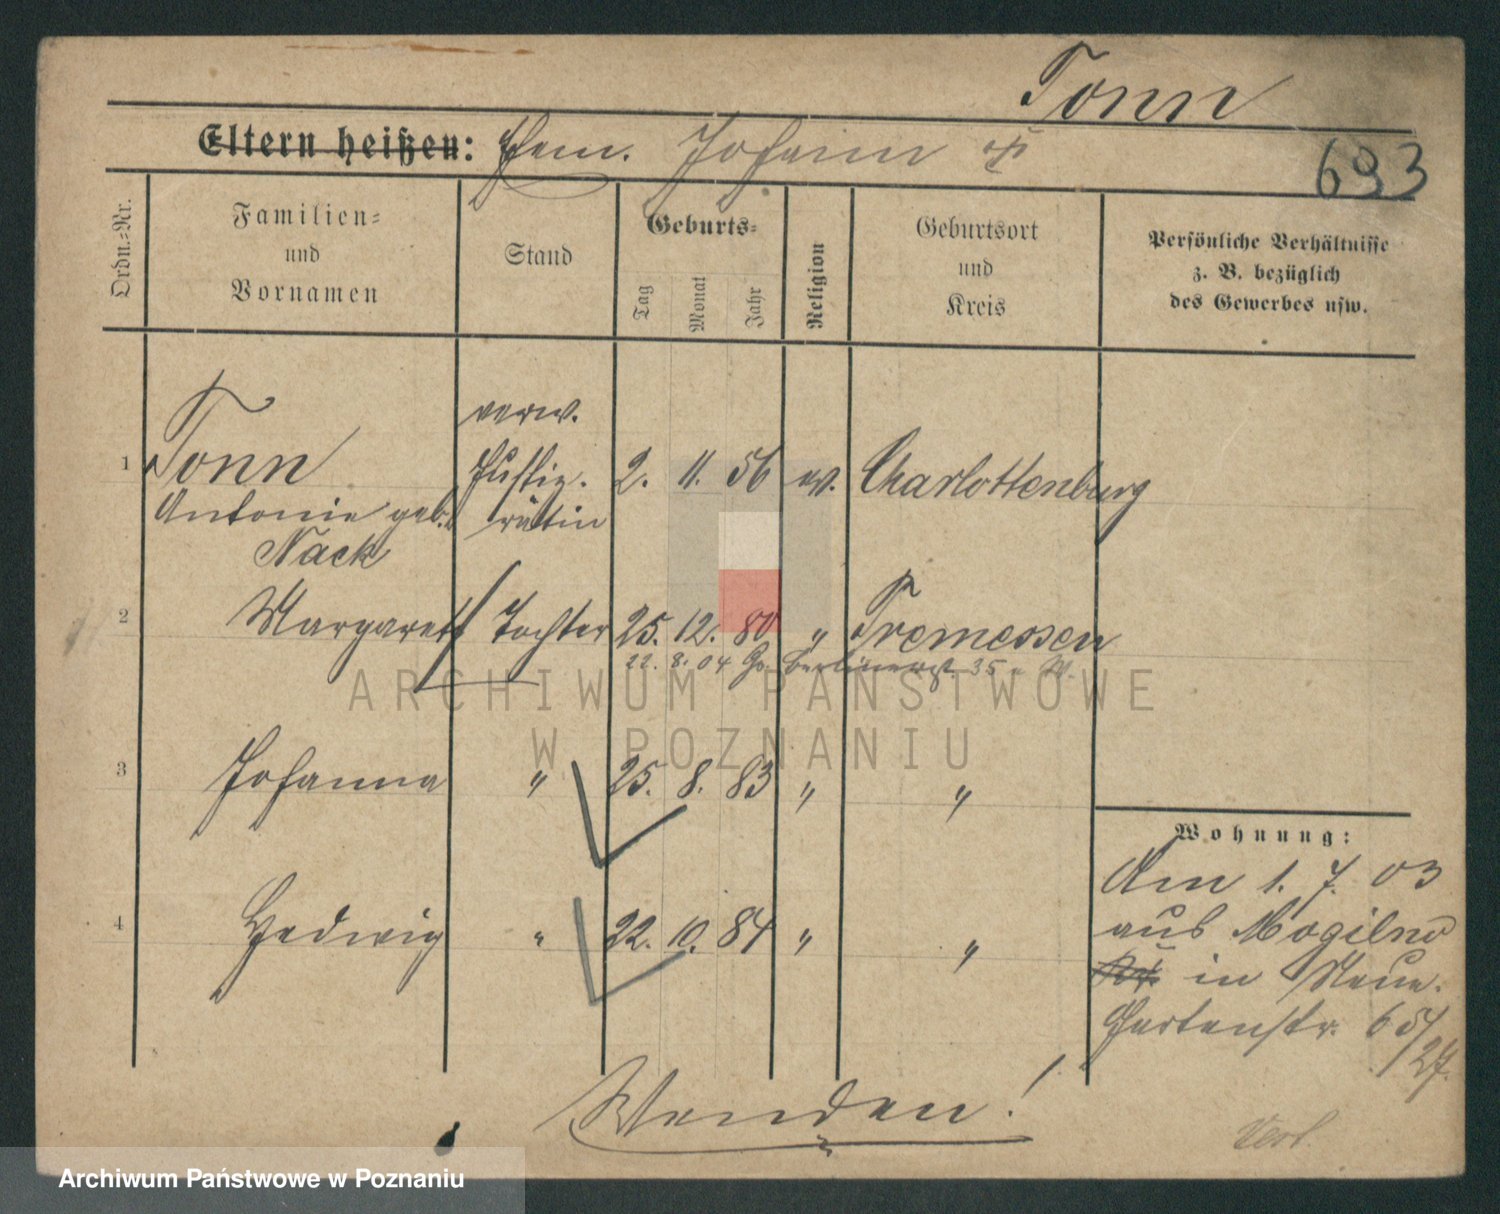 Tonn
Eltern heißen: Ehem. Johann
693
Ordn.-Nr.
Familien- und Vornamen
Stand
Geburts-
Tag
Monat
Jahr
Religion
Geburtsort und Kreis
Persönliche Verhältnisse z. B. bezüglich des Gewerbes usw.
verw.
1 Tonn Justiz- 2. 11. 56 ev. Charlottenburg
Antonie geb. rätin
Nack
2 Margarett Tochter 25. 12. 80 " Tremessen
22. 8. 04 Berlinerst. 35
3 Johanna " 25. 8. 83 " "
4 Hedwig " 22. 10. 84 " "
Wohnung:
Am 1. 7. 03
aus Mogilno
in Neue
Gartenstr. 65/
27.
Wenden!
ARCHIWUM PAŃSTWOWE
W POZNANIU
Archiwum Państwowe w Poznaniu